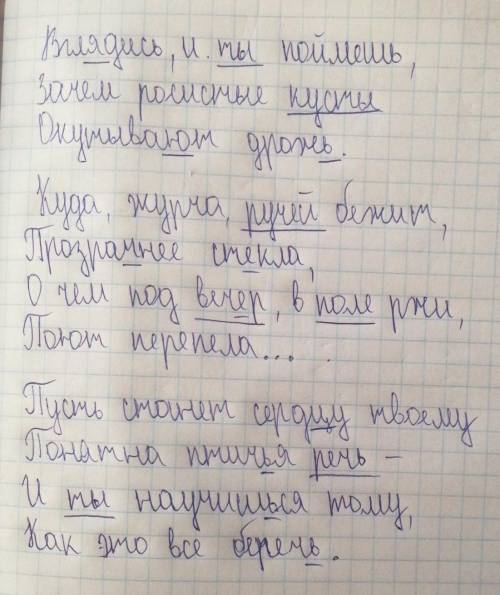 Вглядись, и ты поймешь,
Зачем росистые кусты
Окутывают дрожь.
Куда, журча, ручей бежит,
Прозрачнее стекла,
О чем под вечер, в поле ржи,
Поют перепела...
Пусть станет сердцу твоему
Понятна птичья речь –
И ты научишься тому,
Как это все беречь.